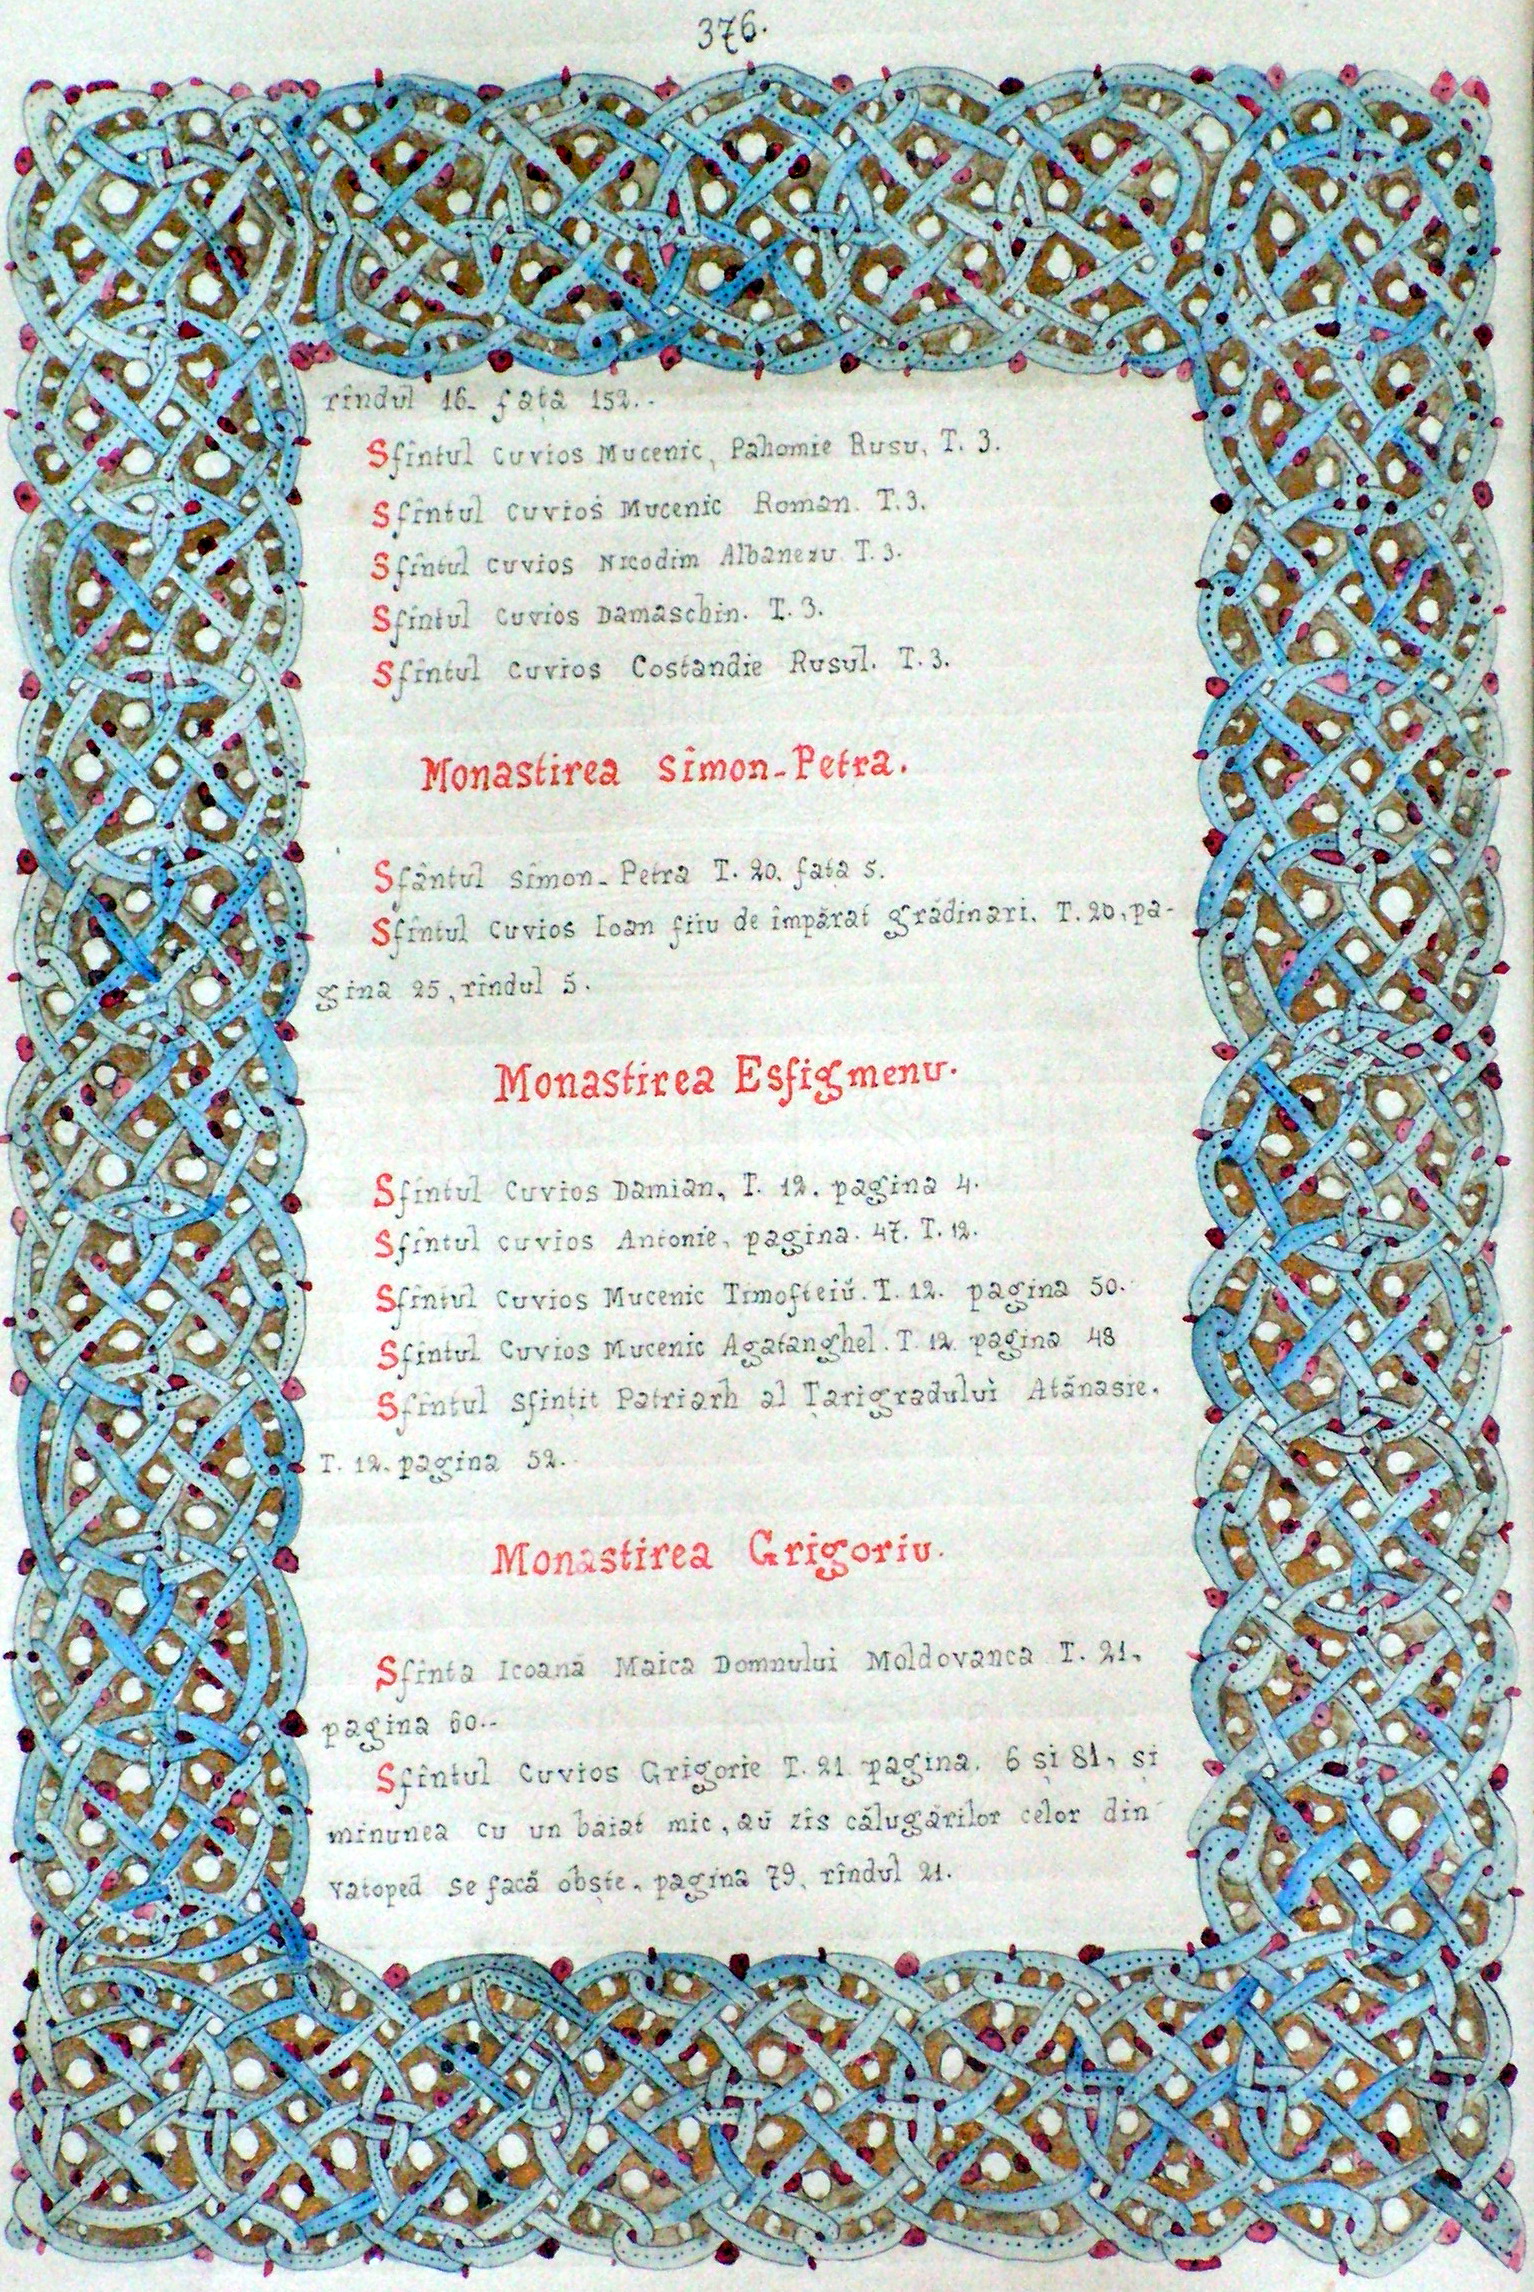 376.
rîndul 16. fața 152.-
Sfîntul Cuvios Mucenic, Pahomie Rusu, T. 3.
Sfîntul Cuvios Mucenic Roman. T. 3.
Sfîntul Cuvios Nicodim Albanezu T. 3.
Sfîntul Cuvios Damaschin. T. 3.
Sfîntul Cuvios Costandie Rusul. T. 3.
Monastirea Simon-Petra.
Sfântul Simon-Petra T. 20. fața 5.
Sfîntul Cuvios Ioan fiiu de împărat grădinari. T. 20, pa-
gina 25, rîndul 5.
Monastirea Esfigmenu.
Sfîntul Cuvios Damian, T. 12. pagina 4.
Sfîntul Cuvios Antonie, pagina. 47. T. 12.
Sfîntul Cuvios Mucenic Timofteiŭ. T. 12. pagina 50.
Sfîntul Cuvios Mucenic Agatanghel. T. 12 pagina 48
Sfîntul Sfințit Patriarh al Țarigradului Atănasie.
T. 12. pagina 52.
Monastirea Grigoriu.
Sfînta Icoană Maica Domnului Moldovanca T. 21,
pagina 60.-
Sfîntul Cuvios Grigorie T. 21 pagina. 6 și 81, și
minunea cu un baiat mic, aŭ zis călugărilor celor din
Vatoped se facă obște, pagina 79, rîndul 21.